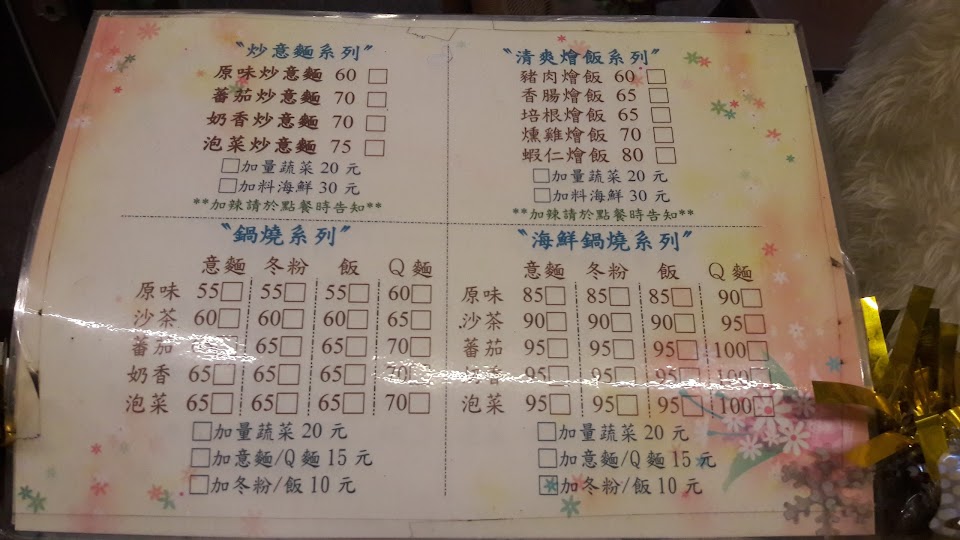 〝炒意麵系列〞
原味炒意麵 60 □
蕃茄炒意麵 70 □
奶香炒意麵 70 □
泡菜炒意麵 75 □
□加量蔬菜 20 元
□加料海鮮 30 元
**加辣請於點餐時告知**
〝清爽燴飯系列〞
豬肉燴飯 60 □
香腸燴飯 65 □
培根燴飯 65 □
燻雞燴飯 70 □
蝦仁燴飯 80 □
□加量蔬菜 20 元
□加料海鮮 30 元
**加辣請於點餐時告知**
〝鍋燒系列〞
意麵 冬粉 飯 Q麵
原味 55□ 55□ 55□ 60□
沙茶 60□ 60□ 60□ 65□
蕃茄 65□ 65□ 70□
奶香 65□ 65□ 65□ 70□
泡菜 65□ 65□ 65□ 70□
□加量蔬菜 20 元
□加意麵/Q麵 15 元
□加冬粉/飯 10 元
〝海鮮鍋燒系列〞
意麵 冬粉 飯 Q麵
原味 85□ 85□ 85□ 90□
沙茶 90□ 90□ 90□ 95□
蕃茄 95□ 95□ 95□ 100□
95□ 95□ 95□ 100□
泡菜 95□ 95□ 95□ 100□
□加量蔬菜 20 元
□加意麵/Q麵 15 元
□加冬粉/飯 10 元